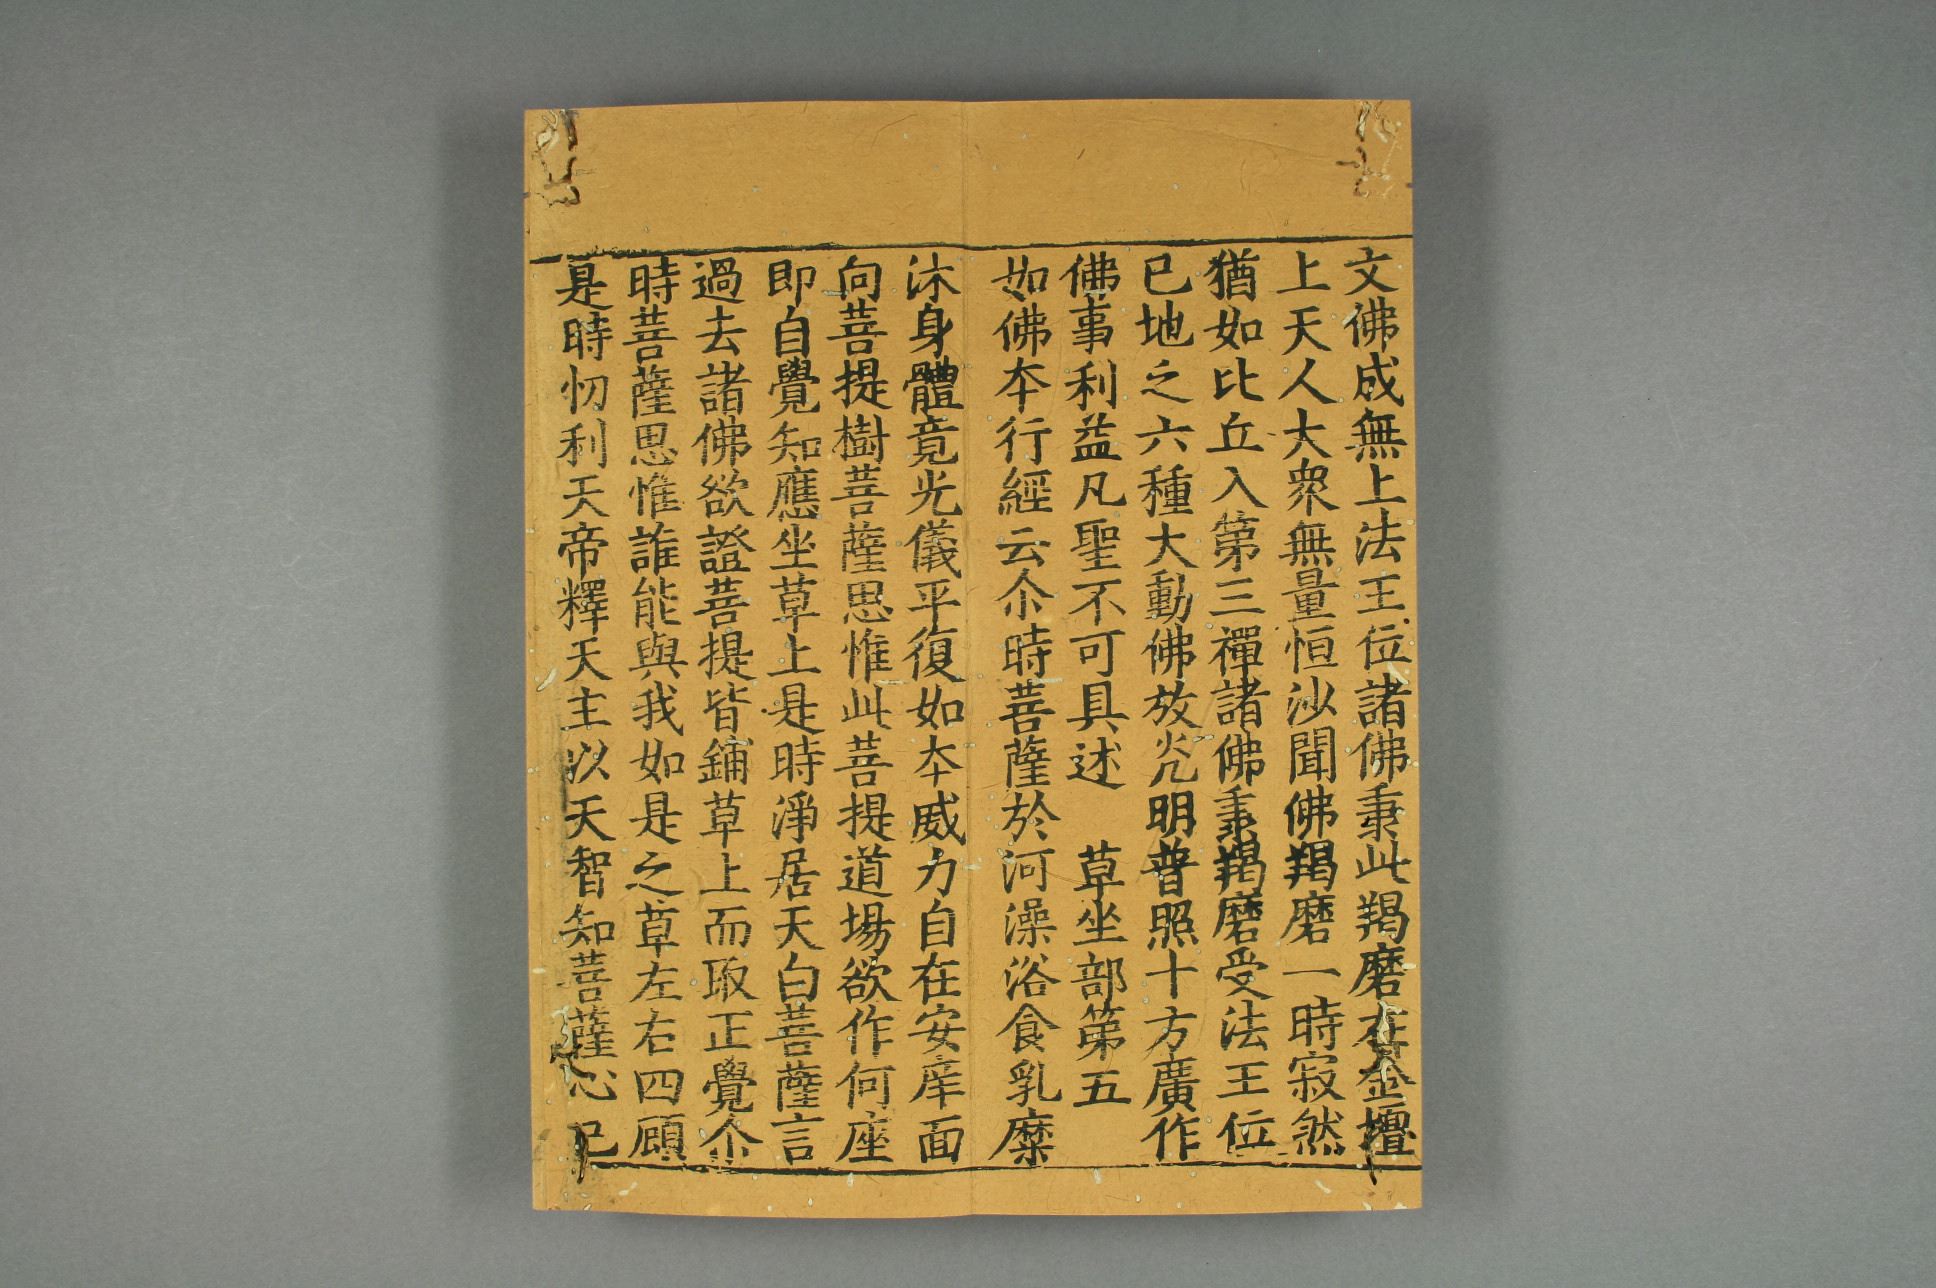 文佛成無上法王位諸佛秉此羯磨在金壇
上天人大衆無量恒沙聞佛羯磨一時寂然
猶如比丘入第三禪諸佛秉羯磨受法王位
已地之六種大動佛放光明普照十方廣作
佛事利益凡聖不可具述　草坐部第五
如佛夲行經云尒時菩薩於河澡浴食乳糜
沐身體竟光儀平復如夲威力自在安庠面
向菩提樹菩薩思惟此菩提道場欲作何座
即自覺知應坐草上是時淨居天白菩薩言
過去諸佛欲證菩提皆鋪草上而取正覺尒
時菩薩思惟誰能與我如是之草左右四顧
是時忉利天帝釋天主以天智知菩薩心已